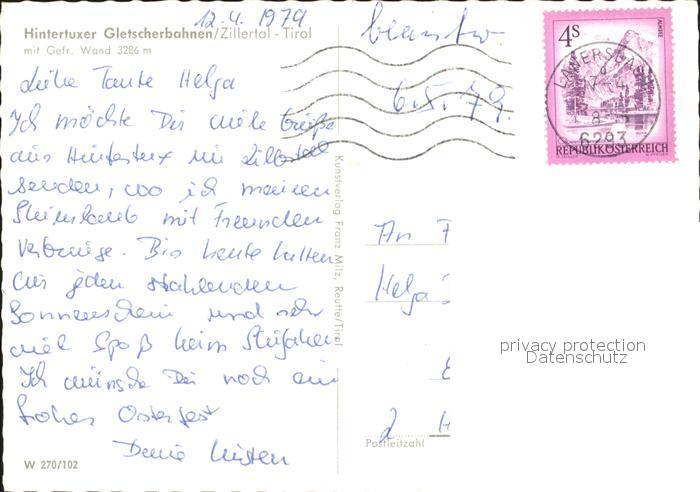 12.4. 1979
Hintertuxer Gletscherbahnen/Zillertal - Tirol
mit Gefr. Wand 3286 m
Liebe Tante Helga
Ich möchte Dir viele Grüße
aus Hintertux im Zillertal
senden, wo ich meinen
Skiurlaub mit Freunden
verbringe. Bis heute hatten
wir jeden strahlenden
Sonnenschein und sehr
viel Spaß beim Skifahren
Ich wünsche Dir noch ein
frohes Osterfest
Deine
W 270/102
Kunstverlag Franz Milz, Reutte/Tirol
beantw.
6.5.79.
4S
ALMSEE
LANERSBACH
6293
REPUBLIK ÖSTERREICH
An F
Helga
privacy protection
Datenschutz
2 H
Postleitzahl